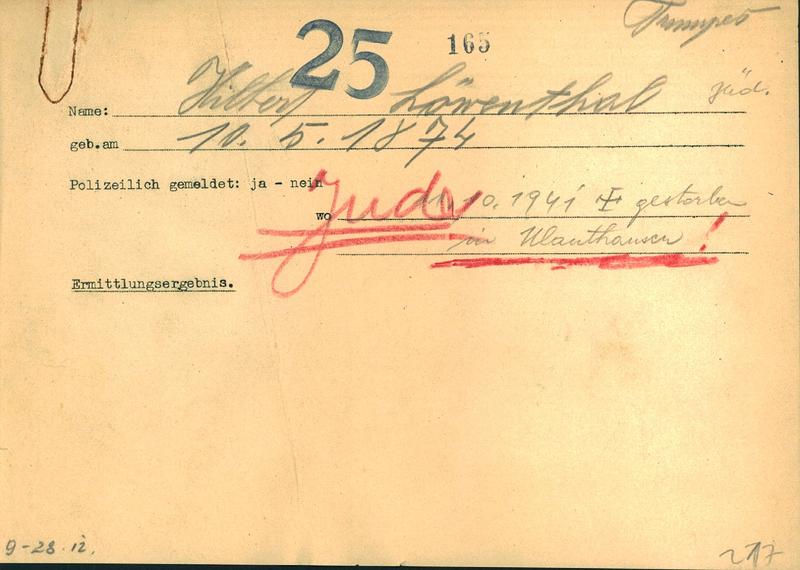 25 165 Trumpet
Name: Hilbert Löwenthal jüd.
geb.am 10. 5. 1874
Polizeilich gemeldet: ja - nein
Jude
wo 11.10.1941 gestorben
in Mauthausen !
Ermittlungsergebnis.
9-28.12.
217